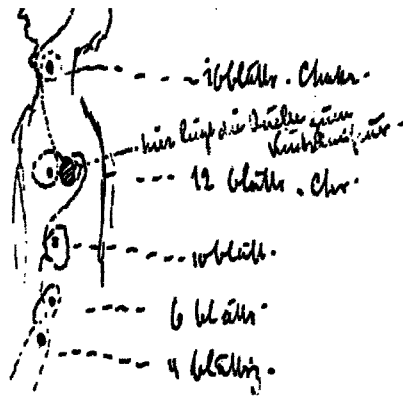 16blättr. Chakr.
hier liegt die Quelle zum
12 blättr. Chr.
10blätt.
6 blättr
4 blättrig.